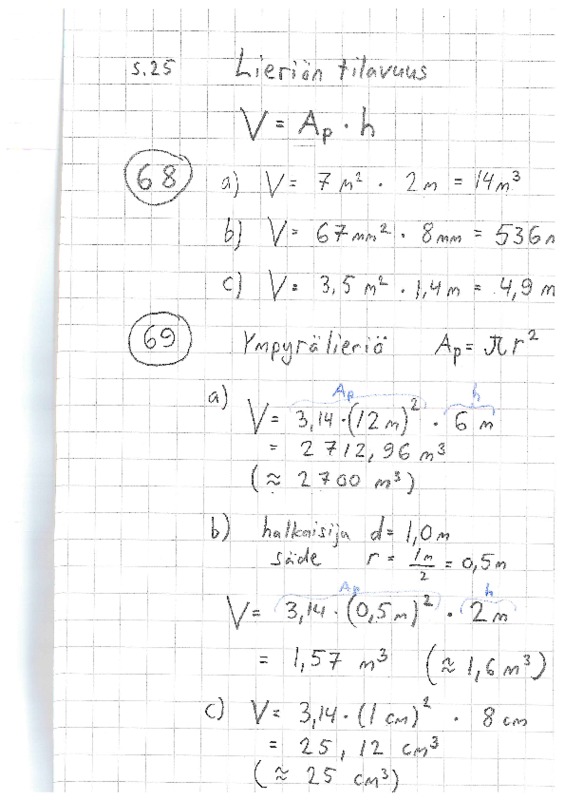 s.25 Lieriön tilavuus
V = Ap · h
68 a) V = 7 m² · 2 m = 14 m³
b) V = 67 mm² · 8 mm = 536 m
c) V = 3,5 m² · 1,4 m = 4,9 m
69 Ympyrälieriö Ap = πr²
a) Ap h
V = 3,14 · (12 m)² · 6 m
= 2 712,96 m³
(≈ 2 700 m³)
b) halkaisija d = 1,0 m
säde r = 1m/2 = 0,5 m
Ap h
V = 3,14 · (0,5 m)² · 2 m
= 1,57 m³ (≈ 1,6 m³)
c) V = 3,14 · (1 cm)² · 8 cm
= 25,12 cm³
(≈ 25 cm³)